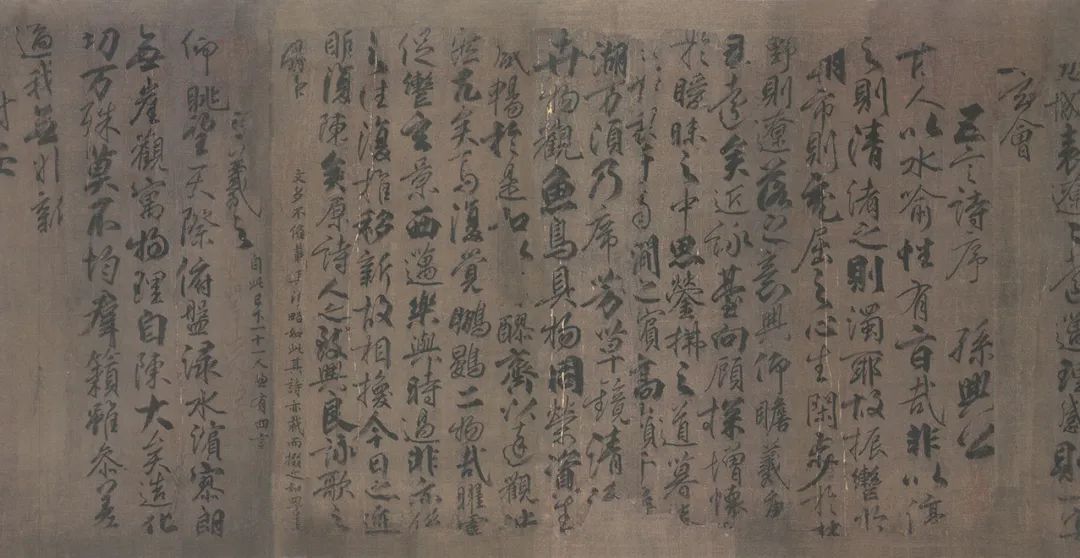 域表遼遼遠邁理感則一冥
玄會
五言詩序 孫興公
古人以水喻性有旨哉非以停
之則清淆之則濁耶故振轡於
朝市則充屈之心生閑步於林
野則遼落之意興仰瞻羲唐
邈遠矣近詠臺閣顧探增懷
於曖昧之中思縈拂之道暮春
之始禊于南澗之濱高嶺千尋
湖万頃乃席芳草鏡清流
卉物觀魚鳥具物同榮資生
咸暢於是和以醪齊以達觀決
然兀矣焉復覺鵬鷃二物哉曜靈
促轡玄景西邁樂與時過悲亦係
之往復推移新故相換今日之迹
明復陳矣原詩人之致興良詠歌之
有由 文多不備載其大略如此其詩亦裁而掇之如四言
王羲之 自此已下十一人並有四言
仰眺望天際俯盤淥水濱寥朗
無崖觀寓物理自陳大矣造化
切万殊莫不均羣籟雖參差
適我無非新